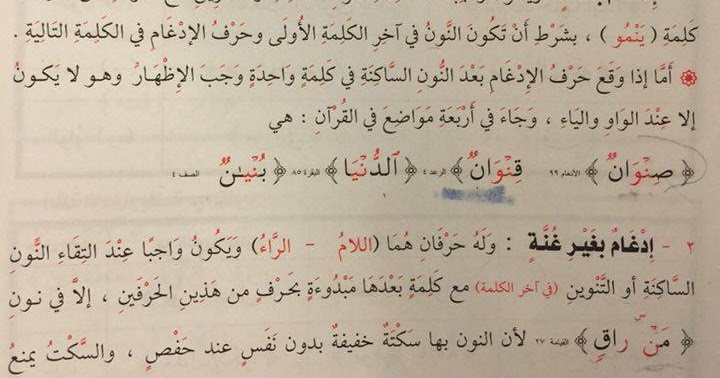 كَلِمَةِ ( يَنْمُو ) ، بشَرْطِ أَنْ تَكُونَ النُّونُ في آخِرِ الكَلِمَةِ الأُولَى وحَرْفُ الإدْغَامِ في الكَلِمَةِ التَّالِيَةِ .
أَمَّا إذا وَقَعَ حَرْفُ الإدْغَامِ بَعْدَ النُّونِ السَّاكِنَةِ في كَلِمَةٍ وَاحِدَةٍ وَجَبَ الإظْهَارُ وهـو لا يَكـونُ
إلا عِنْدَ الوَاوِ واليَاءِ ، وَجَاءَ في أَرْبَعَةِ مَوَاضِعَ في القُرْآنِ : هي
﴿ صِنْوَانٌ ﴾ الأنعام ٩٩ ﴿ قِنْوَانٌ ﴾ الرعد ٤ ﴿ الدُّنْيَا ﴾ البقرة ٨٥ ﴿ بُنْيَـٰنٌ ﴾ الصف ٤
٢ - إدْغَامٌ بِغَيْرِ غُنَّةٍ : وَلَهُ حَرْفَانِ هُمَا (اللامُ - الرَّاءُ) وَيَكُونُ وَاجِبًا عِنْدَ التِقَاءِ النُّونِ
السَّاكِنَةِ أو التَّنْوينِ (في آخر الكلمة) مع كَلِمَةٍ بَعْدَهَا مَبْدُوءَةٍ بحَرْفٍ من هَذِينِ الحَرْفَينِ ، إلاَّ في نـونِ
﴿ مَنْ رَاقٍ ﴾ القيامة ٢٧ لأن النون بها سَكْتَةٌ خفيفةٌ بدون نَفَسٍ عند حَفْصٍ ، والسَّكْتُ يمنعُ